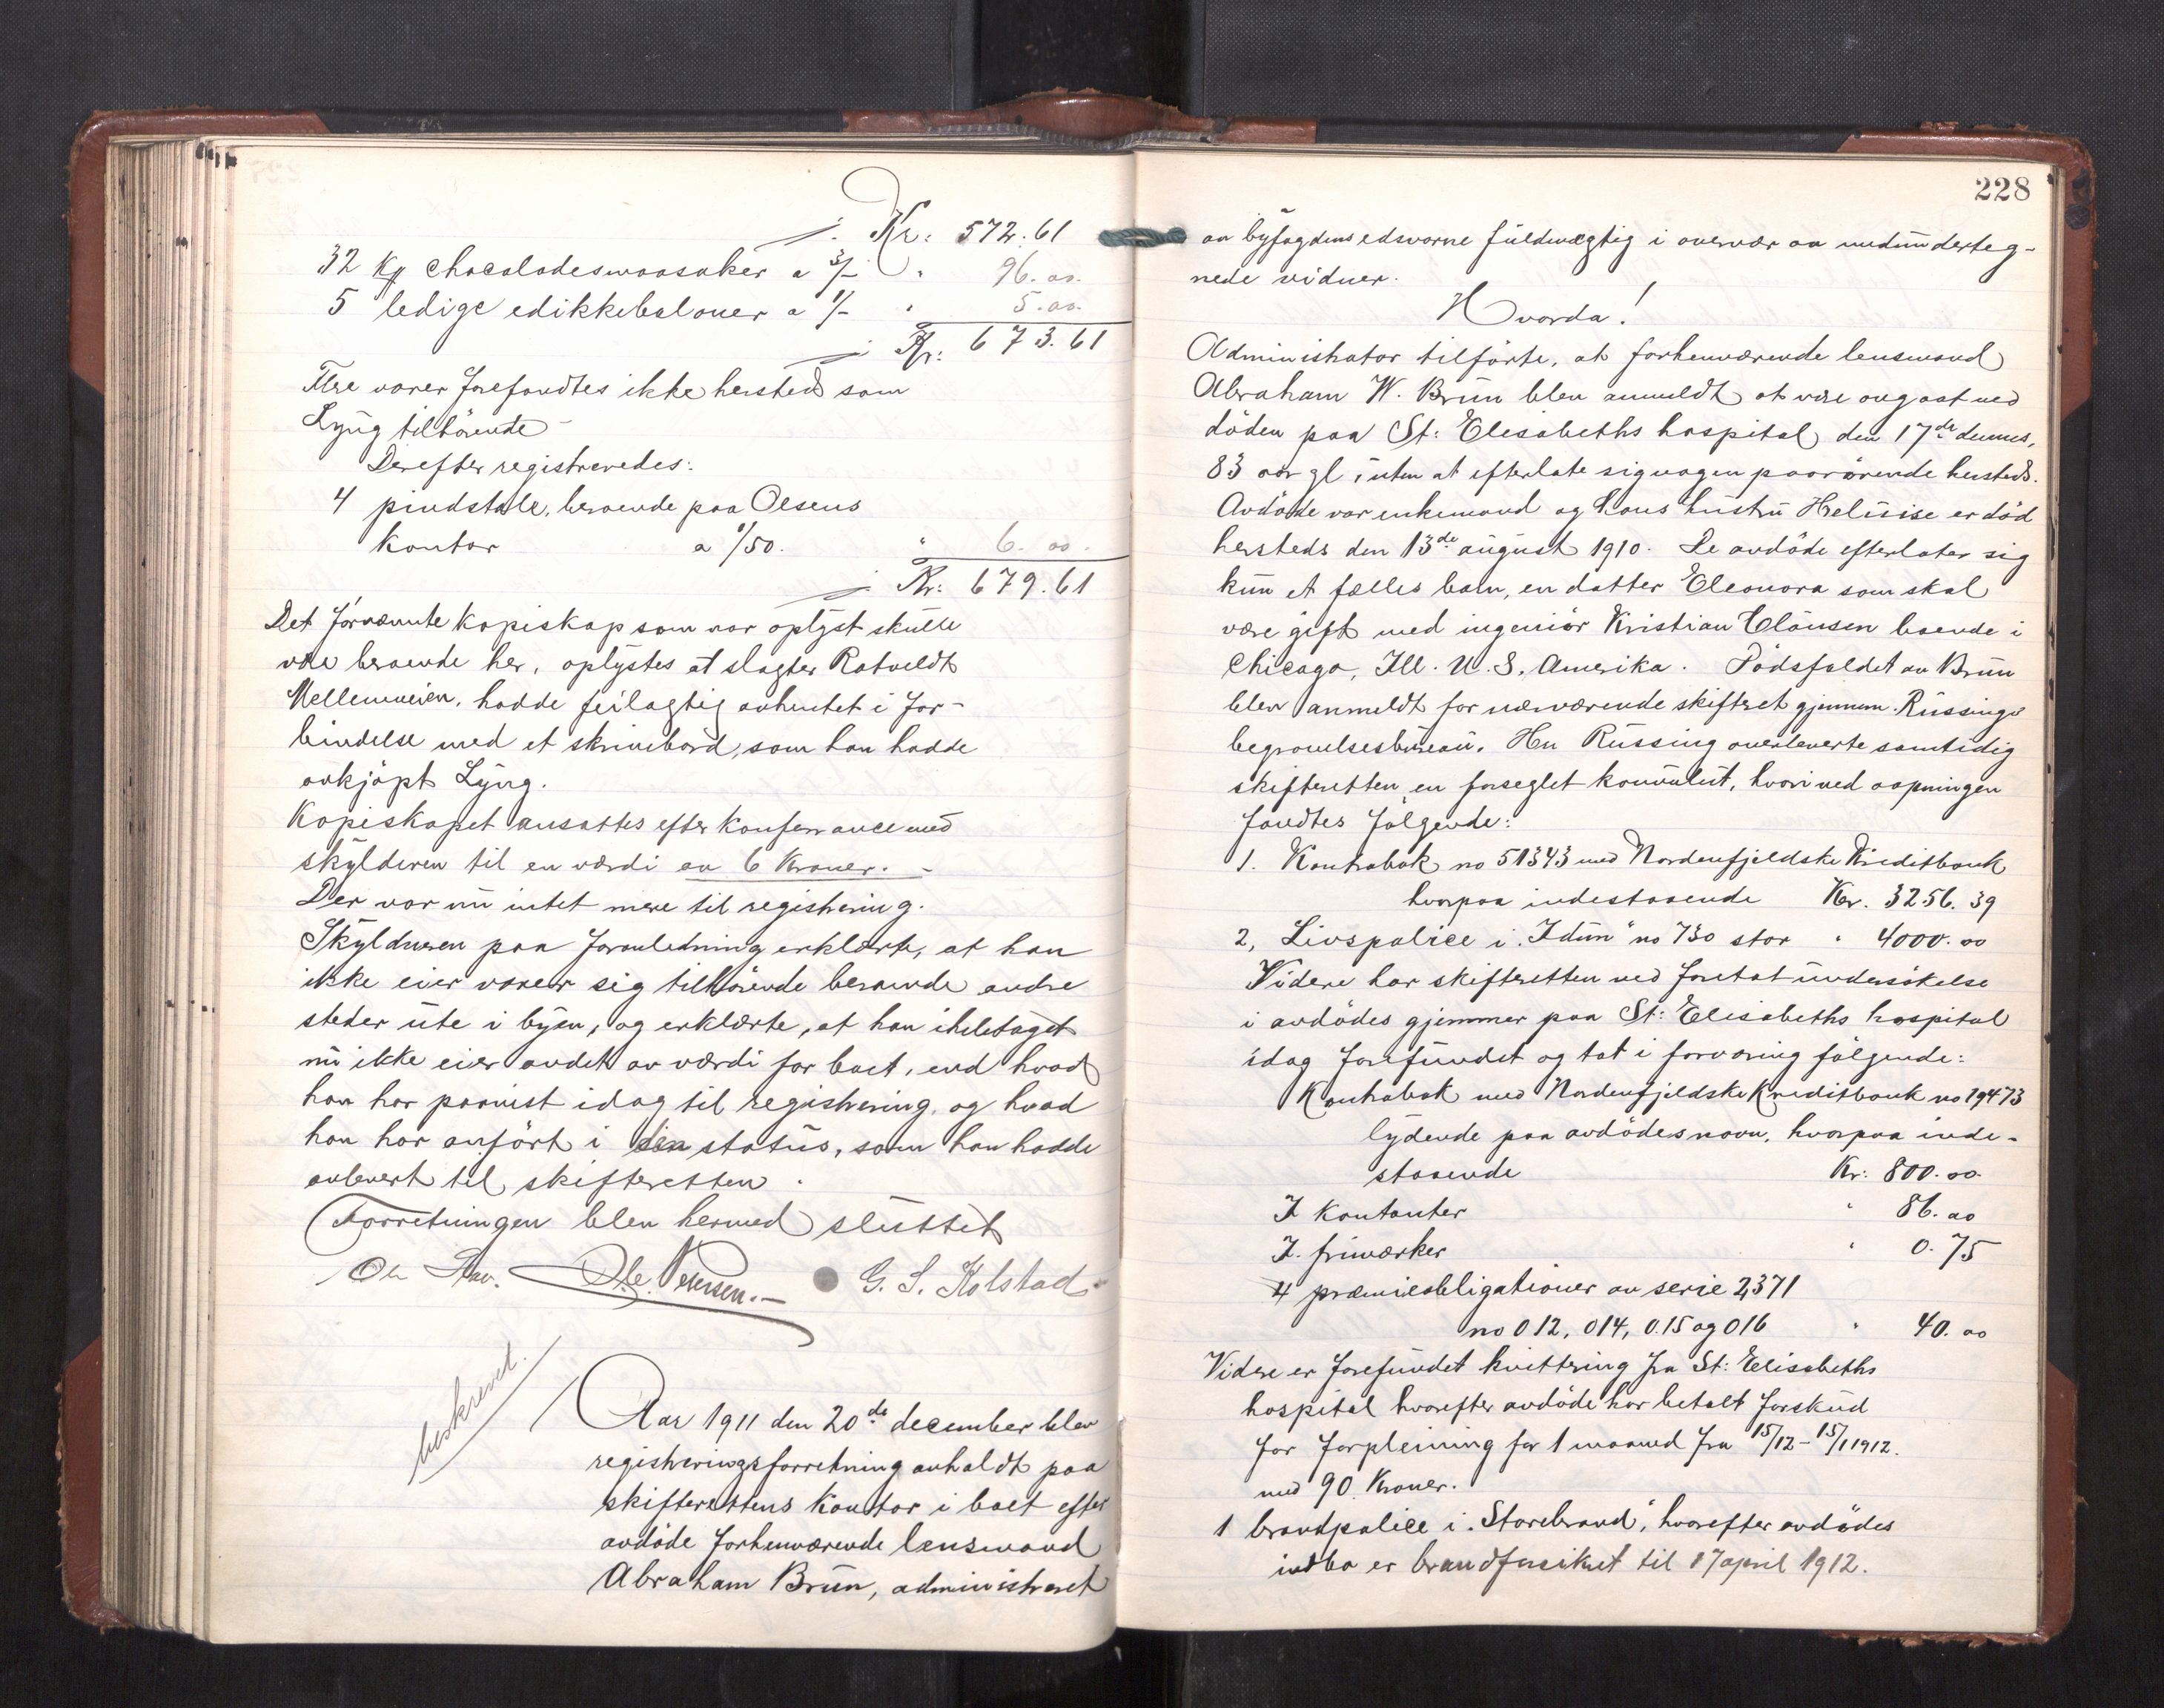 Kr: 572.61
32 Kg chocoladesmaasaker a 3/- " 96.oo.
5 ledige edikkebaloner a 1/- " 5.oo.
Kr: 673.61
Flere varer forefandtes ikke hersteds som
Lyng tilhörende
Derefter registreredes:
4 pindstole, beroende paa Olsens
kontor a 1/50. " 6. oo.
Kr: 679.61
Det förnævnte kopiskap som var oplyst skulle
være beroende her, oplystes at slagter Rotveldt
Mellemveien, hadde feilagtig avhentet i for-
bindelse med et skrivebord, som han hadde
avkjöpt Lyng.
Kopiskapet ansattes efter konferance med
skylderen til en værdi av 6 Kroner. -
Der var nu intet mere til registrering.
Skylderen paa foranledning erklærte, at han
ikke eier varer sig tilhörende beroende andre
steder ute i byen, og erklærte, at han iheletaget
nu ikke eier andet av værdi for boet, end hvad
han har paavist idag til registrering, og hvad
han har anfört i sin status, som han hadde
avlevert til skifteretten.
Forretningen blev hermed sluttet
Ole Petersen.- G. S. Kolstad
beskrevet.
Aar 1911 den 20de december blev
registreringsforretning avholdt paa
skifterettens kontor i boet efter
avdöde forhenværende lensmand
Abraham Brün, administreret
228
av byfogdens edsvorne fuldmægtig i overvær av medunderteg-
nede vidner.
Hvorda!
Administrator tilförte, at forhenværende lensmand
Abraham W. Brün blev anmeldt at være avgaat ved
döden paa St: Elisabeths hospital den 17de dennes,
83 aar gl, uten at efterlate sig nogen paarörende hersteds.
Avdöde var enkemand og hans hustru Heluise er död
hersteds den 13de august 1910. De avdöde efterlater sig
kun et fælles barn, en datter Eleonora som skal
være gift med ingeniör Kristian Clausen boende i
Chicago, Ill. U.S. Amerika. Dödsfaldet av Brün
blev anmeldt for nærværende skifteret gjennem Rüssings
begravelsesbureau. Hr Rüssing overleverte samtidig
skifteretten en forseglet konvolut, hvori ved aapningen
fandtes fölgende:
1. Kontrabok no 51343 med Nordenfjeldske Kreditbank
hvorpaa indestaaende Kr. 3256.39
2, Livspolice i "Idun" no 730 stor " 4000.oo
Videre har skifteretten ved foretat undersökelse
i avdödes gjemmer paa St: Elisabeths hospital
idag forefundet og tat i forvaring fölgende:
Kontrabok med Nordenfjeldske Kreditbank no 19473
lydende paa avdödes navn, hvorpaa inde-
staaende Kr: 800.oo
I kontanter " 86.oo
I. frimærker " 0.75
4 præmieobligationer av serie 2371
no 012, 014, 015 og 016 " 40.oo
Videre er forefundet kvittering fra St: Elisabeths
hospital hvorefter avdöde har betalt forskud
for forpleining for 1 maaned fra 15/12-15/1 1912.
med 90 Kroner.
1 brandpolice i "Storebrand", hvorefter avdödes
indbo er brandforsikret til 17 april 1912.